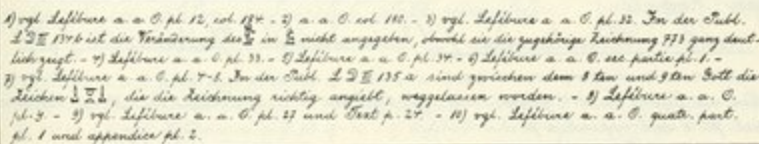 1) vgl. Lefébure a. a. O. pl. 12, col. 184. - 2) a. a. O. col. 190. - 3) vgl. Lefébure a. a. O. pl. 32. In der Publ.
L D III 134 b ist die Veränderung des in nicht angegeben, obwohl sie die zugehörige Zeichnung 773 ganz deut-
lich zeigt. - 4) Lefébure a. a. O. pl. 33. - 5) Lefébure a. a. O. pl. 34. - 6) Lefébure a. a. O. sec. partie pl. 1. -
7) vgl. Lefébure a. a. O. pl. 4-5. In der Publ. L D III 135 a sind zwischen dem 8 ten und 9 ten Gott die
Zeichen , die die Zeichnung richtig angiebt, weggelassen worden. - 8) Lefébure a. a. O.
pl. 9. - 9) vgl. Lefébure a. a. O. pl. 27 und Text p. 24. - 10) vgl. Lefébure a. a. O. quatr. part.
pl. 1 und appendice pl. 2.